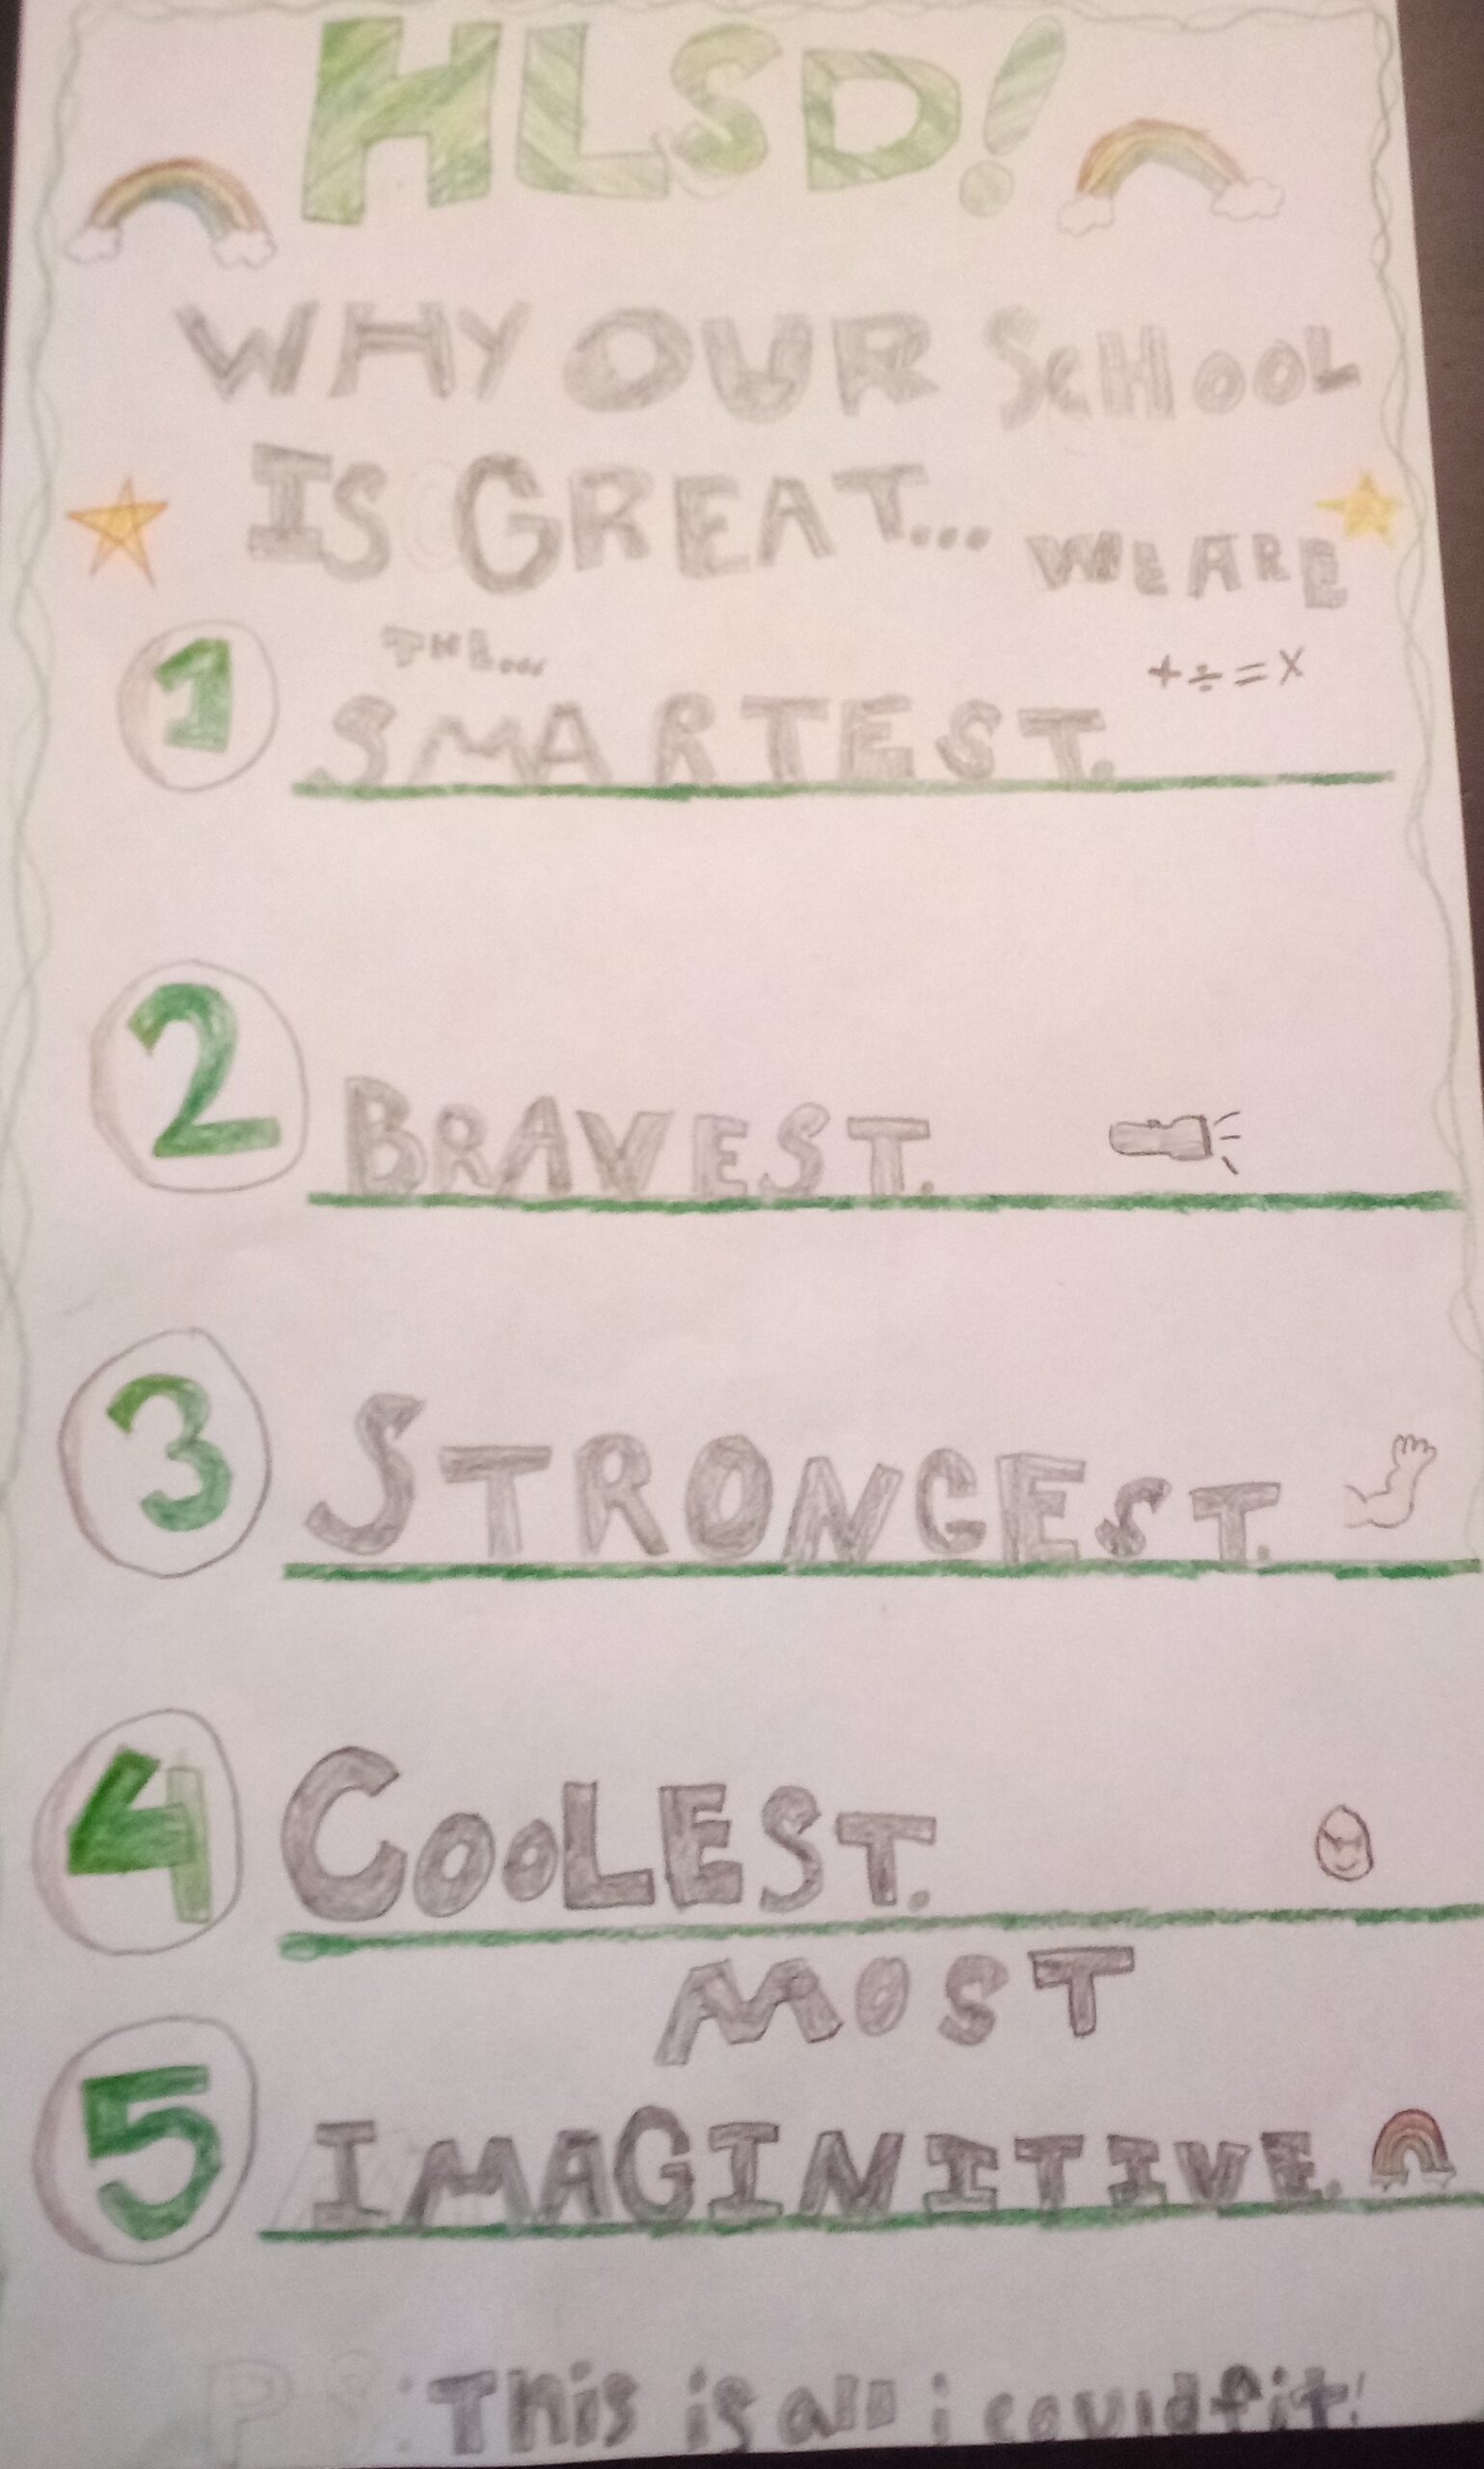 HLSD!
WHY OUR SCHOOL
IS GREAT... WE ARE
THE...
1 SMARTEST. +÷=X
2 BRAVEST.
3 STRONGEST.
4 COOLEST.
MOST
5 IMAGINITIVE.
PS: This is all i could fit!